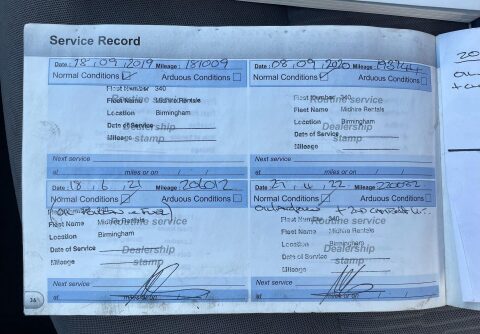 Service Record
Date : 18, 09, 2019 Mileage : 181009
Normal Conditions Arduous Conditions
Fleet Number 340
Routine service
Fleet Name Midhire Rentals
Location Birmingham
Dealership
Date of Service
stamp
Mileage
Next service
at miles or on / /
Date : 08, 09, 2020 Mileage :
Normal Conditions Arduous Conditions
Fleet Number 340
Routine service
Fleet Name Midhire Rentals
Location Birmingham
Dealership
Date of Service
stamp
Mileage
Next service
at miles or on / /
Date : 18, 6, 21 Mileage : 206012
Normal Conditions Arduous Conditions
Fleet Name Midhire Rentals
Routine service
Location Birmingham
Date of Service
Dealership
Mileage
stamp
Next service
at miles or on / /
Date : 27, 4, 22 Mileage : 220082
Normal Conditions Arduous Conditions
Fleet Number 340
Routine service
Fleet Name Midhire Rentals
Location Birmingham
Dealership
Date of Service
stamp
Mileage
Next service
at miles or on / /
36
20